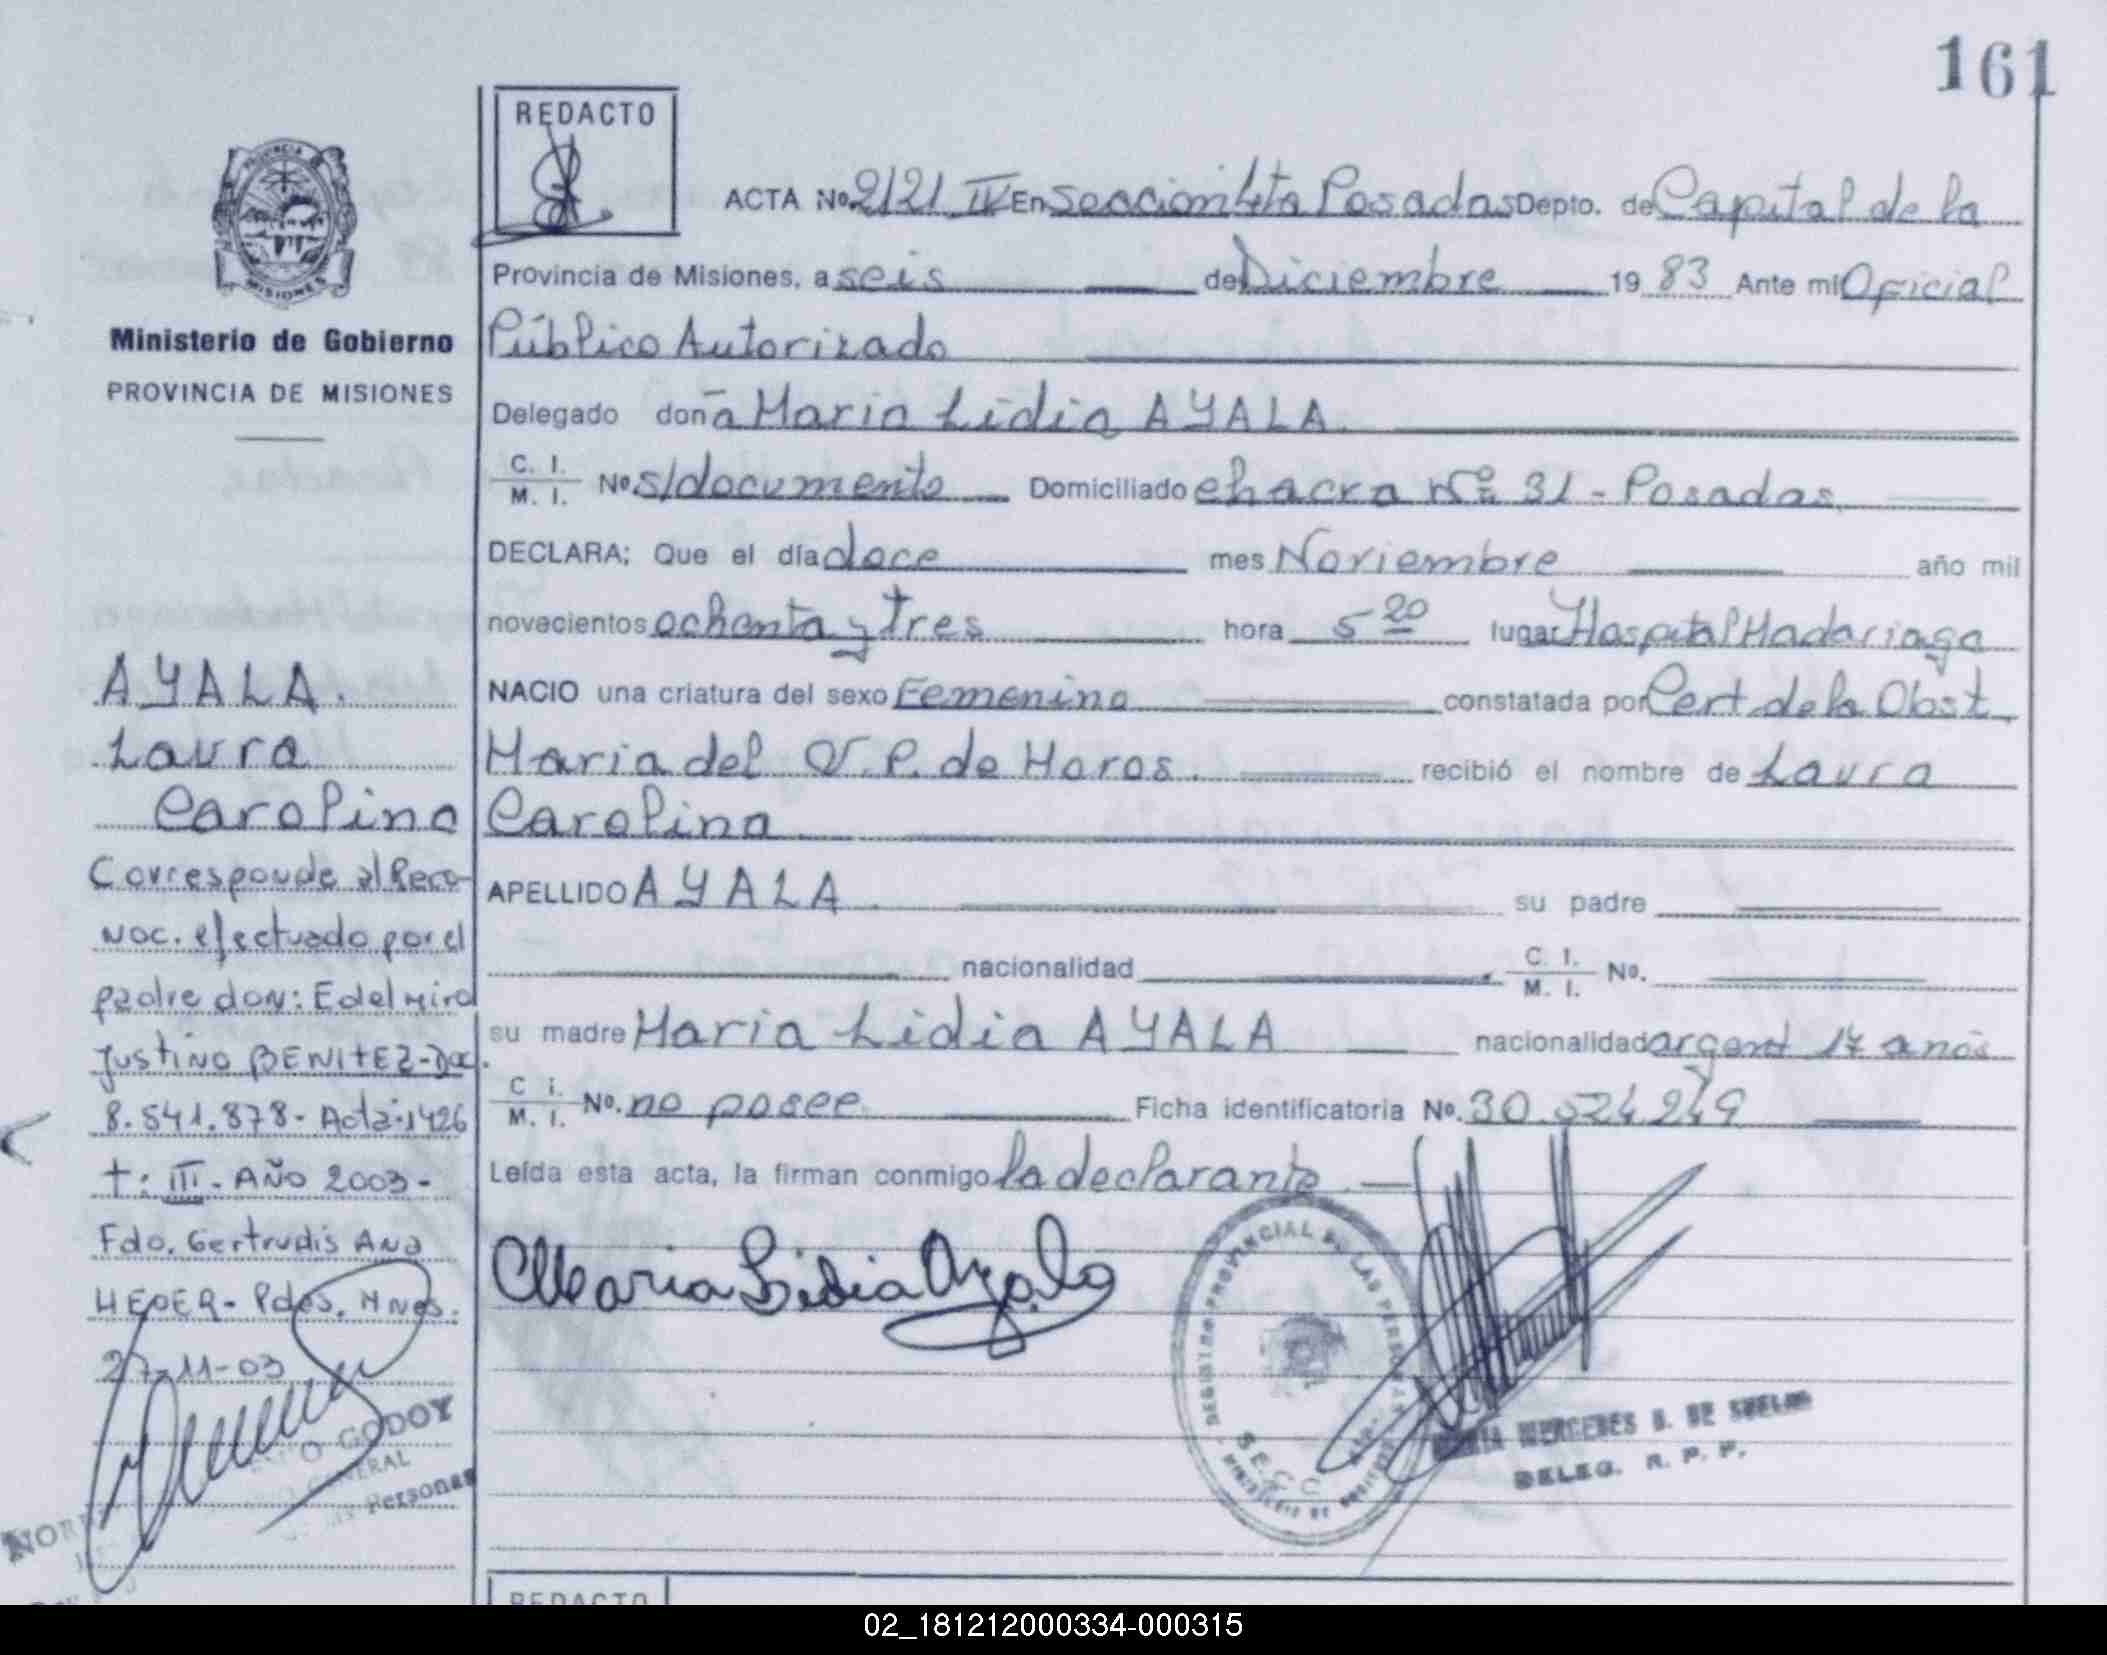 161
REDACTO
ACTA No 2121 IV En Seccion 4ta Posadas Depto. de Capital de la
Provincia de Misiones, a seis de Diciembre 19 83 Ante mi Oficial
Público Autorizado
Delegado doña Maria Lidia AYALA.
C. I. M. I. No s/documento Domiciliado chacra Nº 31 - Posadas
DECLARA; Que el día doce mes Noviembre año mil
novecientos ochenta y tres hora 5 20 lugar Hospital Madariaga
NACIO una criatura del sexo Femenino constatada por Cert de la Obst.
Maria del V. P. de Moros. recibió el nombre de Laura
Carolina
APELLIDO AYALA su padre
nacionalidad C. I. M. I. No.
su madre Maria Lidia AYALA nacionalidad argent 17 años
C. I. M. I. No. no posee Ficha identificatoria No. 30.524.249
Leída esta acta, la firman conmigo la declarante.
Maria Lidia Ayala
REGISTRO PROVINCIAL DE LAS PERSONAS
SECC
DE SUELDO
DELEG. R. P. P.
PROVINCIA
MISIONES
Ministerio de Gobierno
PROVINCIA DE MISIONES
AYALA.
Laura
Carolina
Corresponde al Reco-
noc. efectuado por el
padre don: Edelmiro
Justino BENITEZ-Doc.
8.541.878- Acta:1426
t: III- AÑO 2003-
Fdo. Gertrudis Ana
HEDER- Pdas. Mnes.
27-11-03
GODOY
GENERAL
Personas
REDACTO
02_181212000334-000315